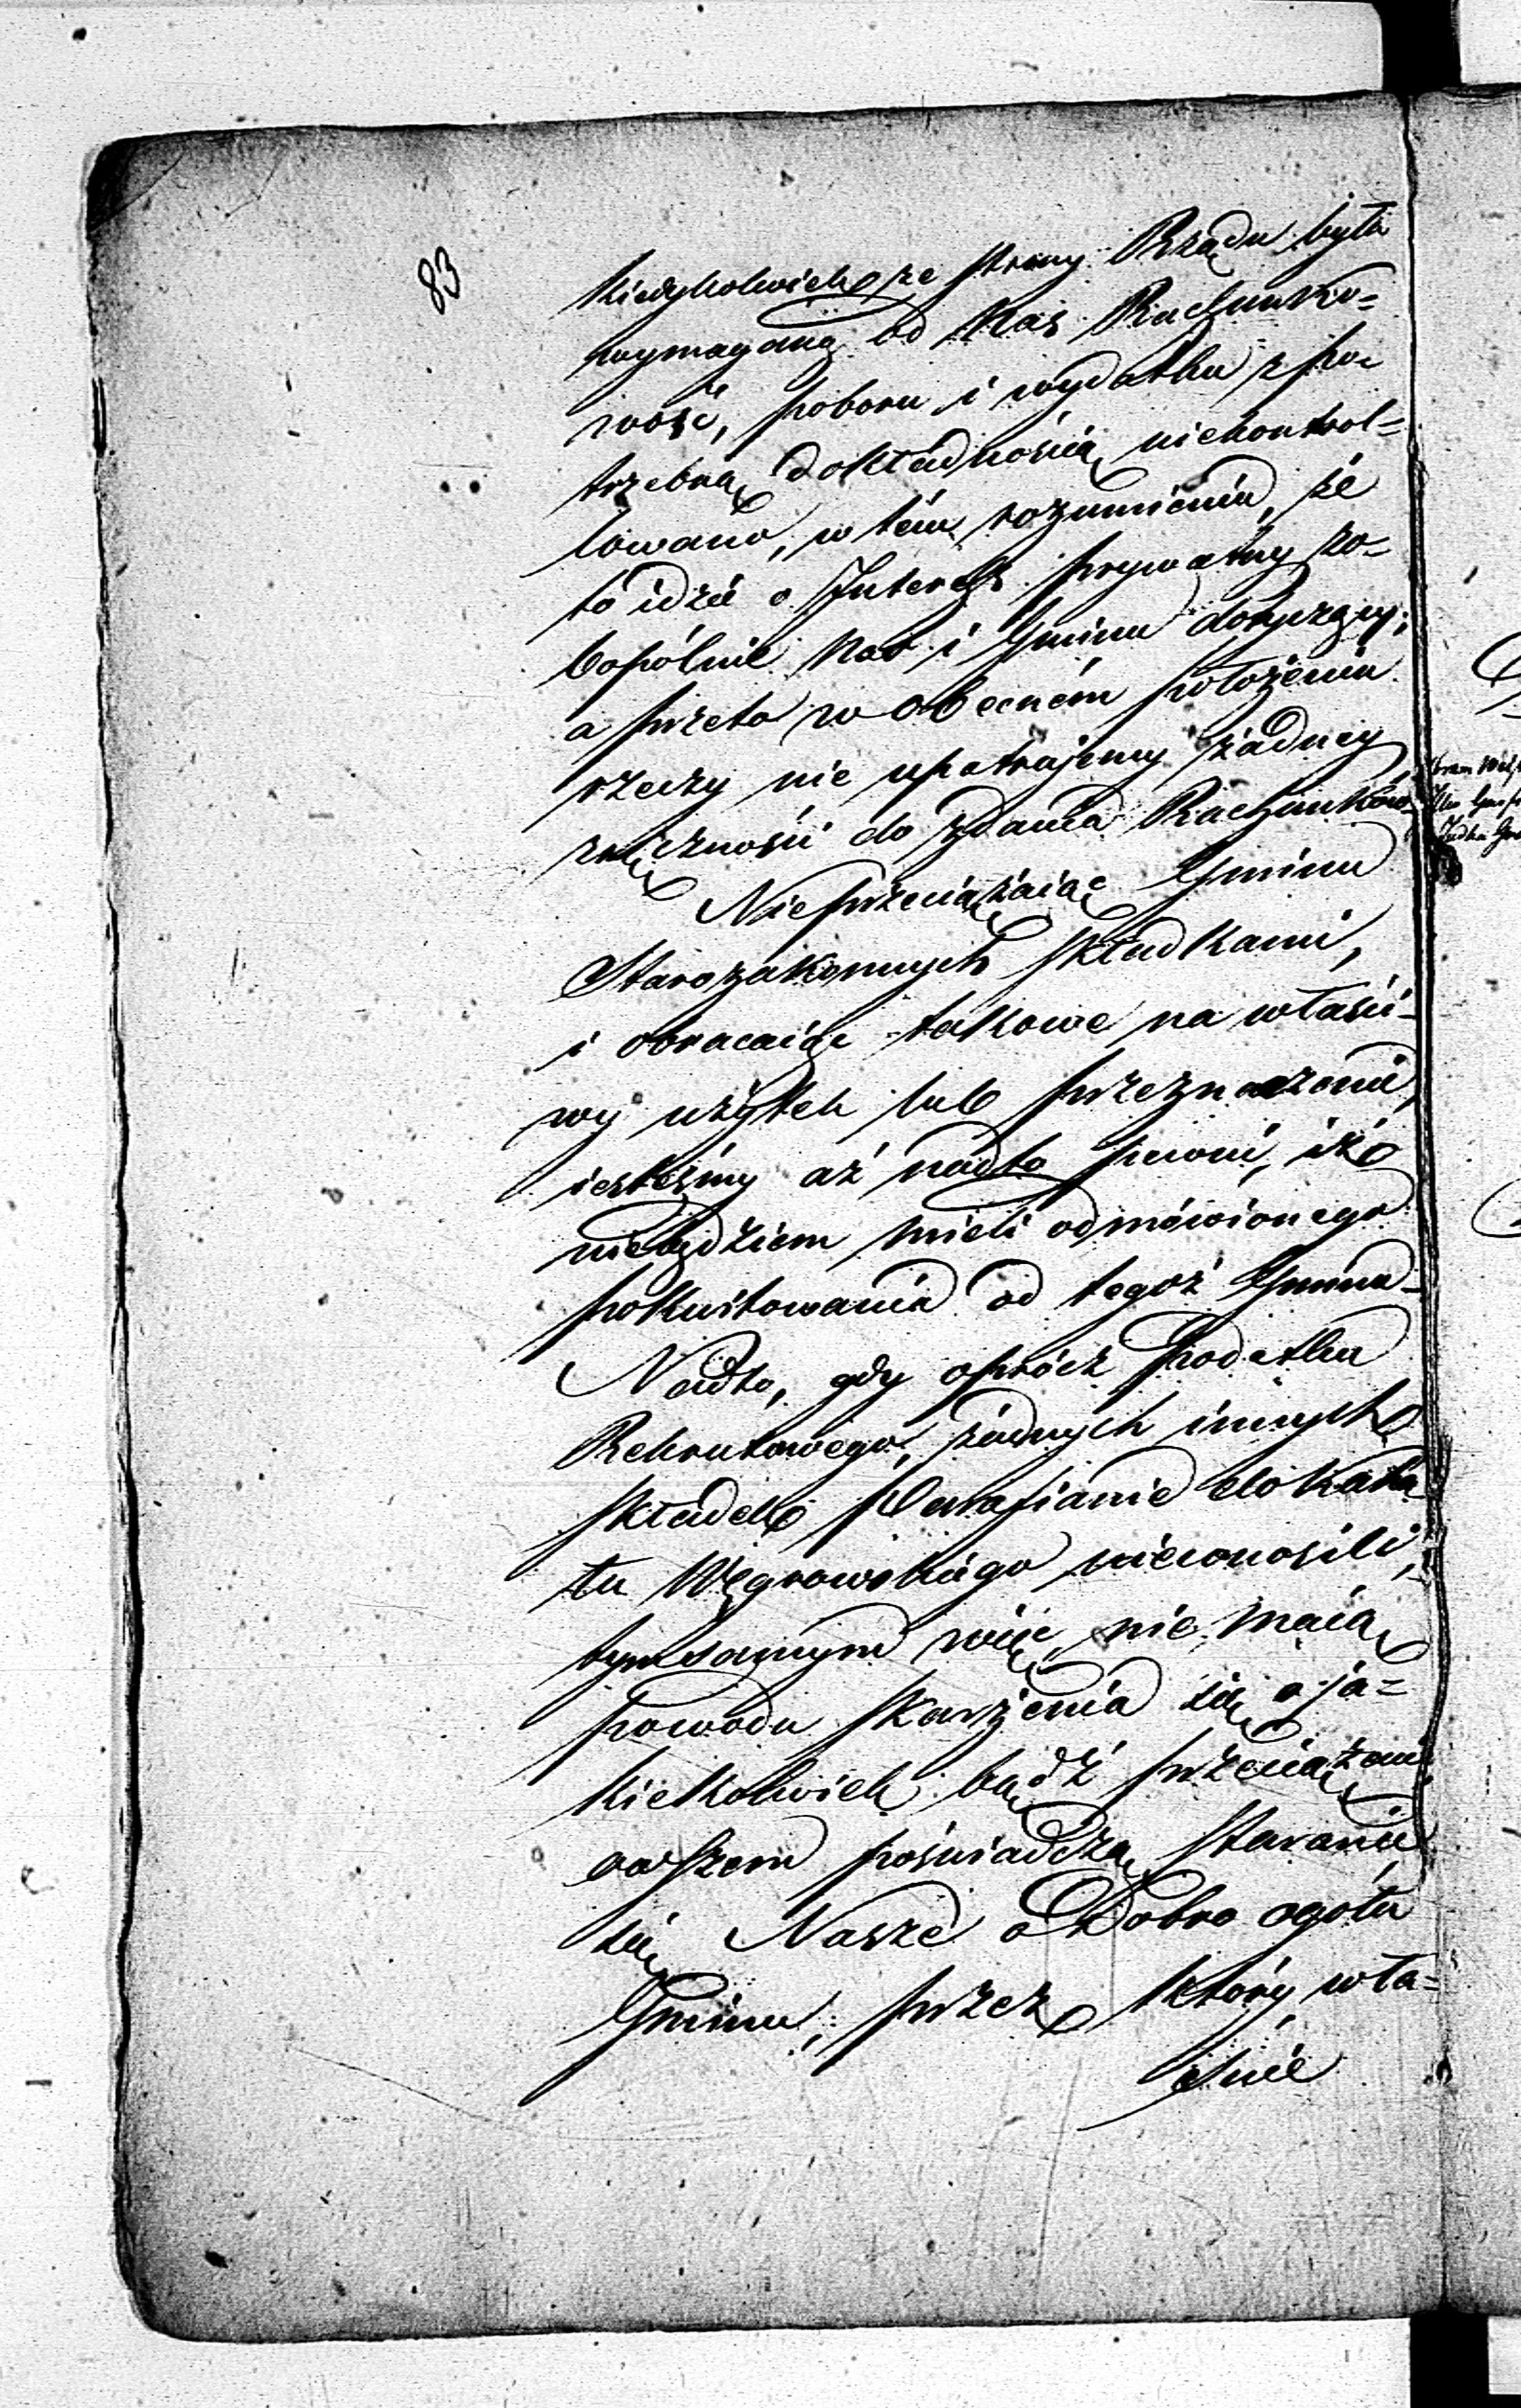 83
kiedykolwiek ze strony Rządu była
wymaganą od Nas Rachunko-
wość, poboru i wydatku z po-
trzebną dokładnością niekontrol-
lowano, w tém rozumieniu, że
to idzie o Interess prywatny zo-
bopólnie Nas i Gminu dotyczący;
a przeto w obecném położeniu
rzeczy nie upatrujemy żadney
zręcznosci do zdania Rachunków
Nieprzeciążaiąc Gminu
Starozakonnych składkami,
i obracaiąc takowe na właści-
wy użytek lub przeznaczenie,
iesteśmy aż nadto pewni, iż
niebędziem mieli odmówionego
pokwitowania od tegoż Gminu
Nadto, gdy oprócz podatku
Rekrutowego, żadnych innych
składek Parafianie do Kaha-
tu Węgrowskiego niewnosili,
tym samym więc nie maią
powodu skarżenia się o ja-
kiekolwiek bądź przeciążenie
owszem poświadczą staranie
się Nasze o Dobro ogółu
Gminu, przez który wła-
śnie